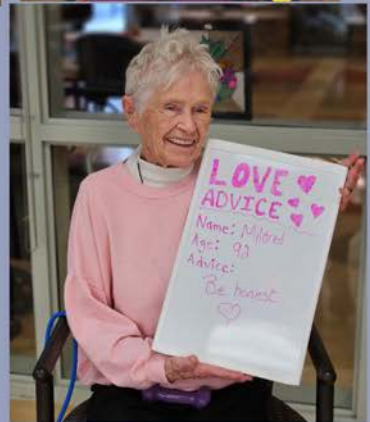 LOVE
ADVICE
Name: Mildred
Age: 92
Advice:
Be honest